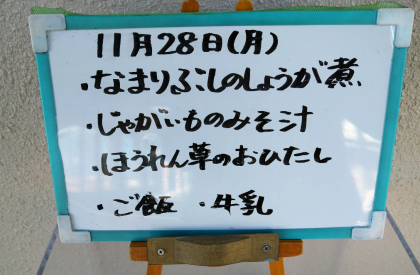 11月28日(月)
・なまりぶしのしょうが煮
・じゃがいものみそ汁
・ほうれん草のおひたし
・ご飯 ・牛乳